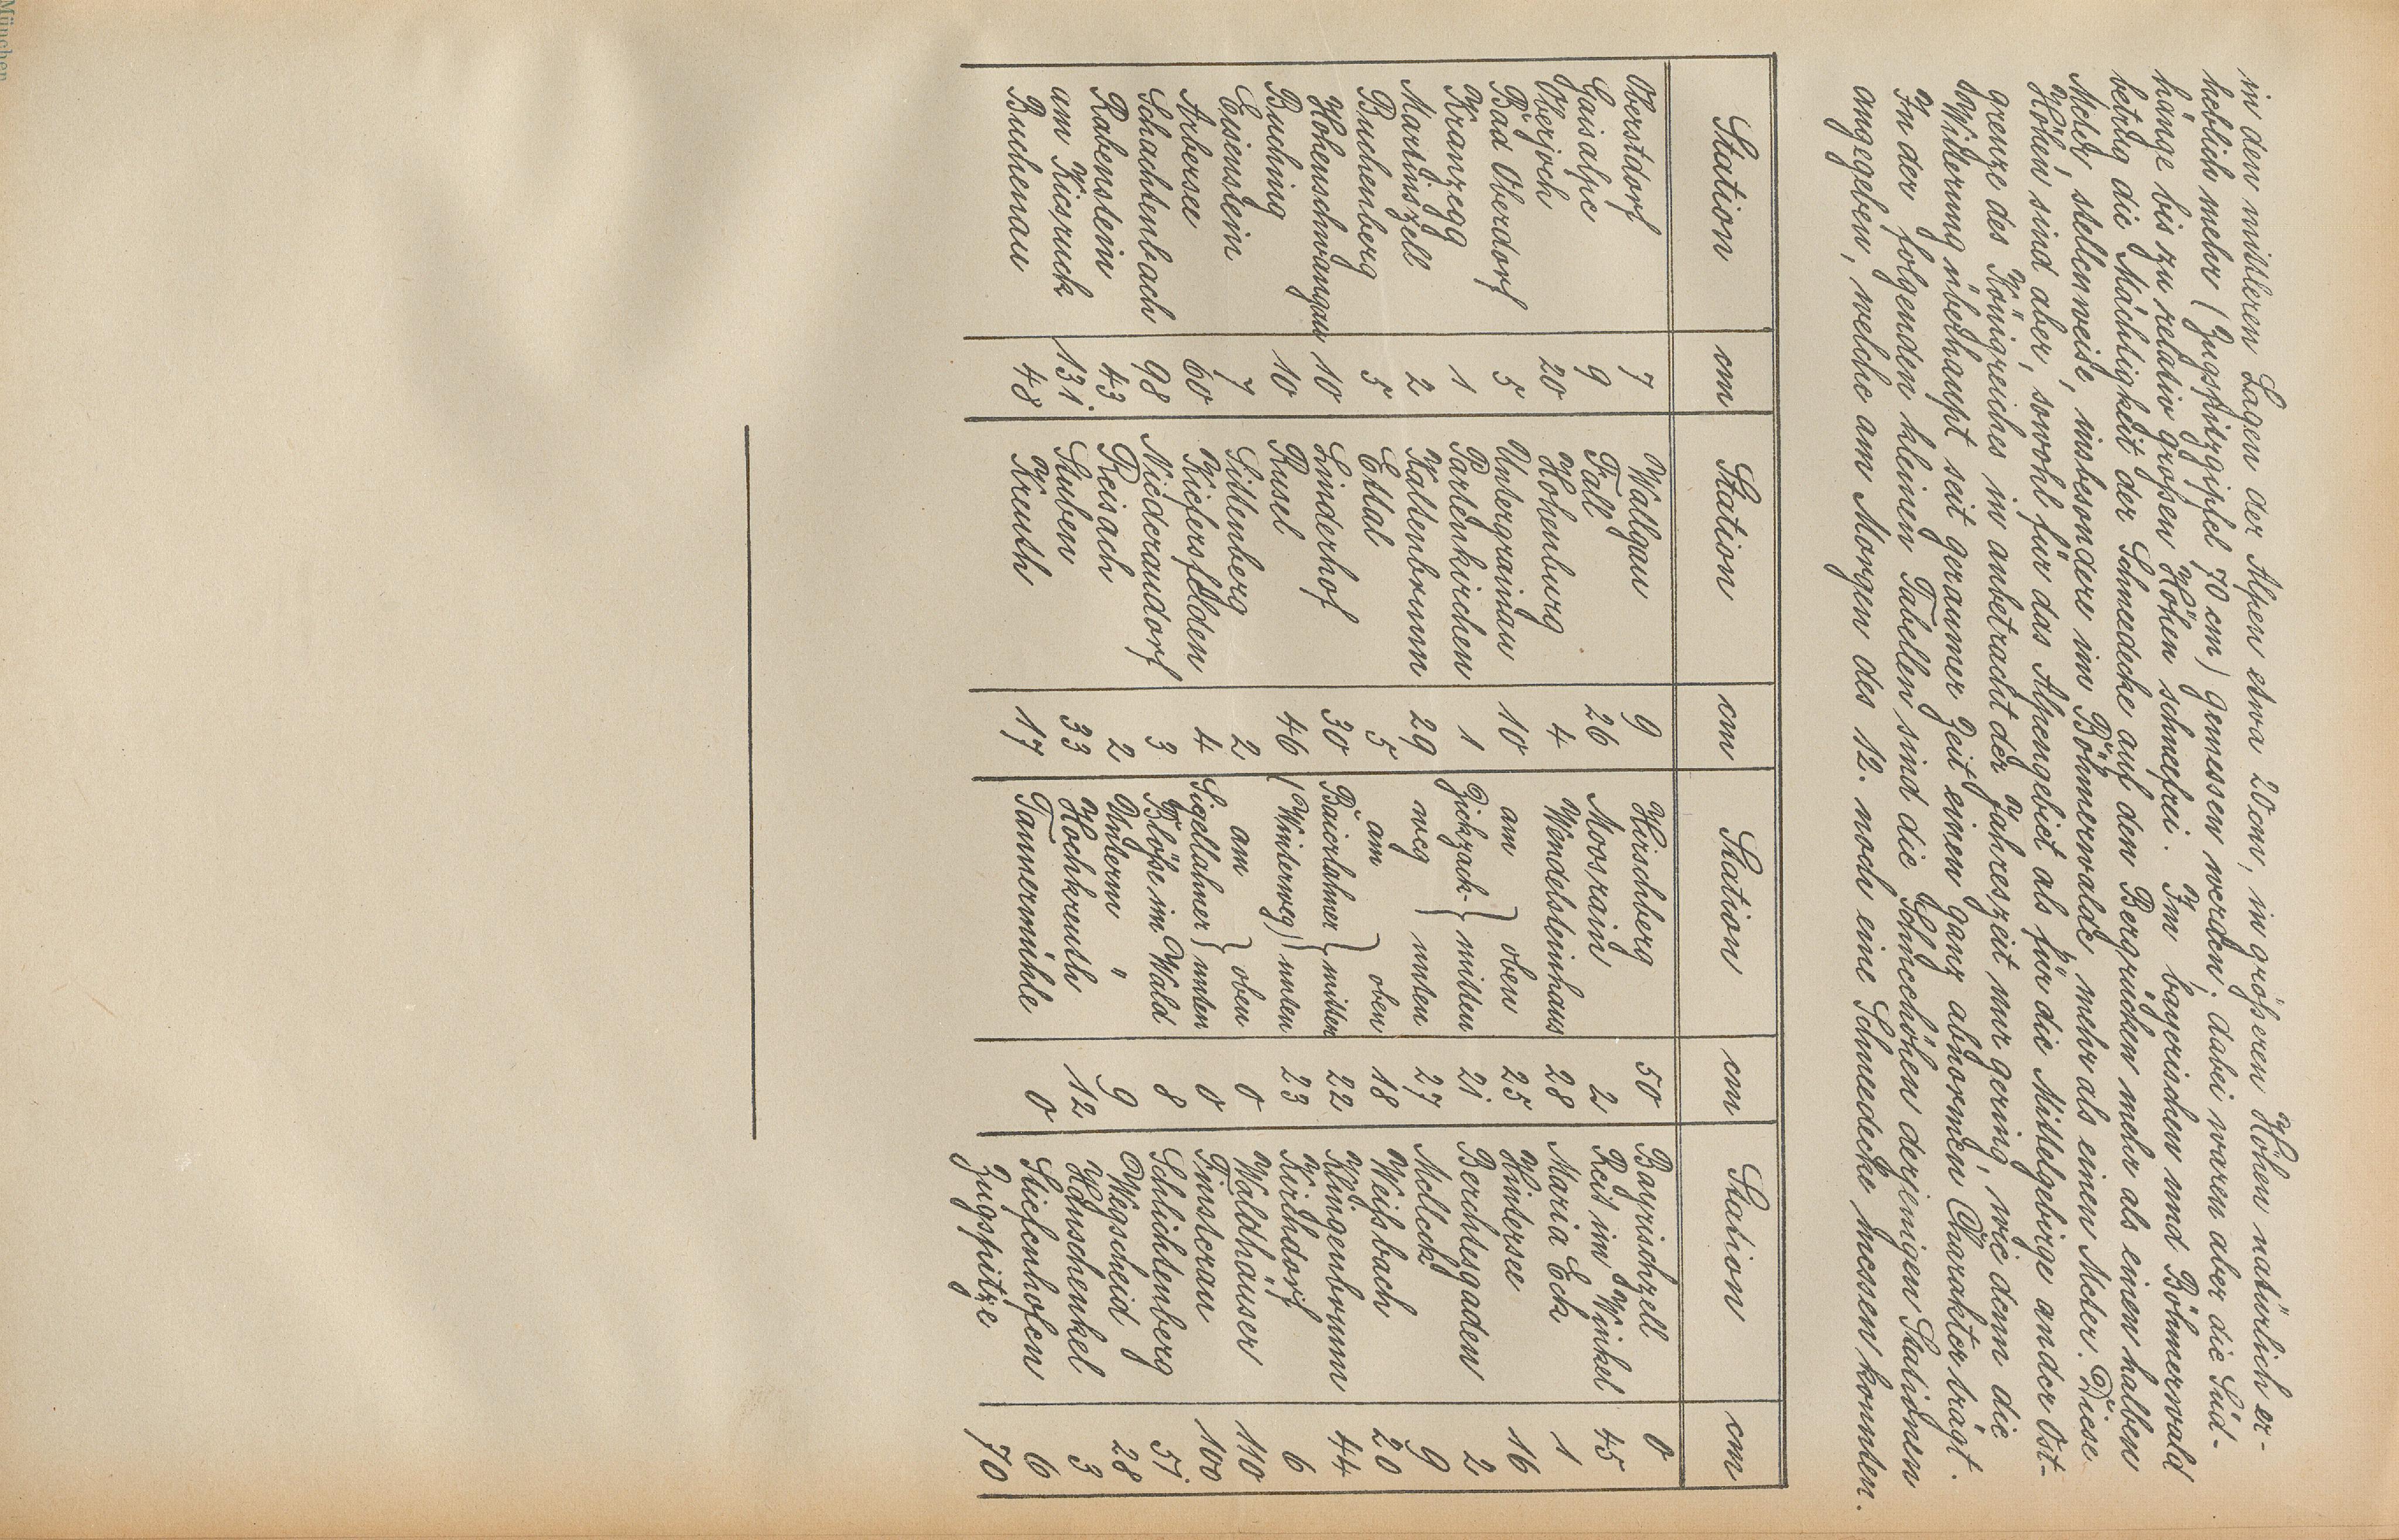 in den mittleren Lagen der Alpen etwa 20cm, in größeren Höhen natürlich er-
heblich mehr (Zugspitzgipfel 70 cm) gemessen werden; dabei waren aber die Süd-
hänge bis zu relativ großen Höhen schneefrei. Im bayerischen und Böhmerwald
betrug die Mächtigkeit der Schneedecke auf den Bergrücken mehr als einen halben
Meter, stellenweise, insbesondere im Böhmerwalde, mehr als einen Meter. Diese
Höhen sind aber, sowohl für das Alpengebiet als für die Mittelgebirge an der Ost-
grenze des Königreiches in anbetracht der Jahreszeit nur gering, wie denn die
Witterung überhaupt seit geraumer Zeit einen ganz abnormen Charakter trägt.
In der folgenden kleinen Tabellen sind die Schneehöhen derjenigen Stationen
angegeben, welche am Morgen des 12. noch eine Schneedecke messen konnten.
Station cm Station cm Station cm Station cm
Oberstdorf 7 Wallgau 9 Hirschberg 50 Bayrischzell 0
Gaisalpe 9 Fall 26 Moosrain 2 Reit im Winkel 45
Oberjoch 20 Hohenburg 4 Wendelsteinhaus 28 Maria Eck 1
Bad Oberdorf 5 Untergrainau 10 am oben 25 Hintersee 16
Kranzegg 1 Partenkirchen 1 Zickzack- mitten 21 Berchtesgaden 2
Martinszell 2 Kaltenbrunn 29 weg unten 27 Melleck 9
Buchenberg 5 Ettal 5 am oben 18 Weißbach 20
Hohenschwangau 10 Linderhof 30 Baierlahner mitten 22 Klingenbrunn 44
Buching 10 Rusel 46 (Winterweg) unten 23 Kirchdorf 6
Eisenstein 7 Sittenberg 2 am oben 0 Waldhäuser 110
Arbersee 60 Kiefersfelden 4 Sigellahner unten 0 Finsterau 100
Schachtenbach 98 Niederaudorf 3 Blöße im Wald 8 Schlichtenberg 57
Rabenstein 43 Reisach 2 Untern " 9 Wegscheid 28
am Kiesruck 131 Stuben 33 Hochkreuth 12 Hönschenkel 3
Buchenau 48 Kreuth 17 Tannermühle 0 Stiefenhofen 6
Zugspitze 70
München